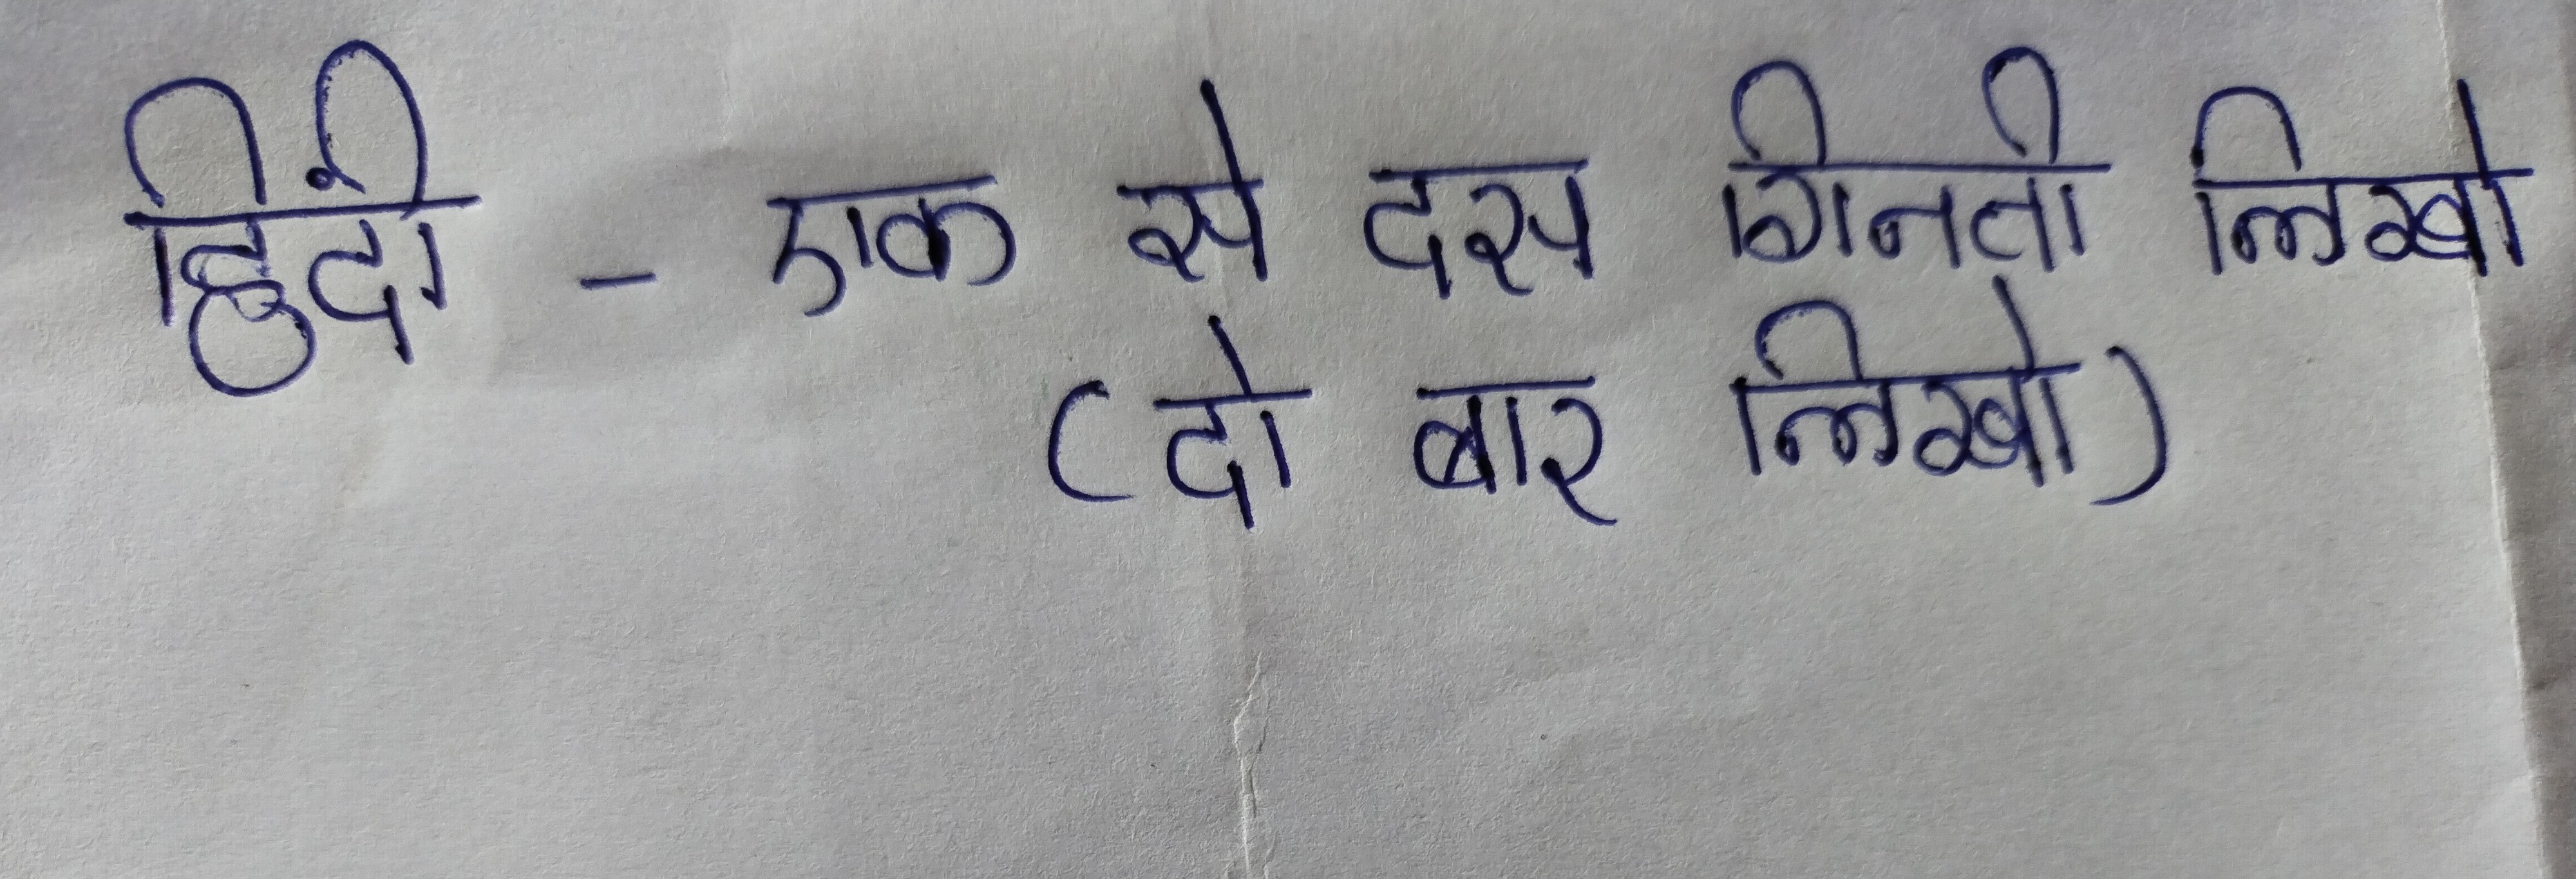 हिंदी - एक से दस गिनती लिखो
(दो बार लिखो)